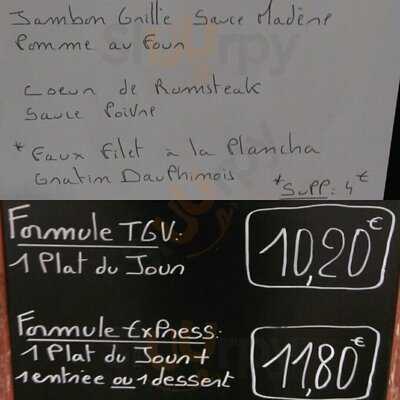 Jambon Grillé Sauce Madère
Pomme au Four
Coeur de Rumsteak
Sauce Poivre
* Faux Filet à la Plancha
Gratin Dauphinois
*Supp: 4€
Formule TGV:
1 Plat du Jour
10,20€
Formule ExPress:
1 Plat du Jour+
1 entrée ou 1 dessert
11,80€